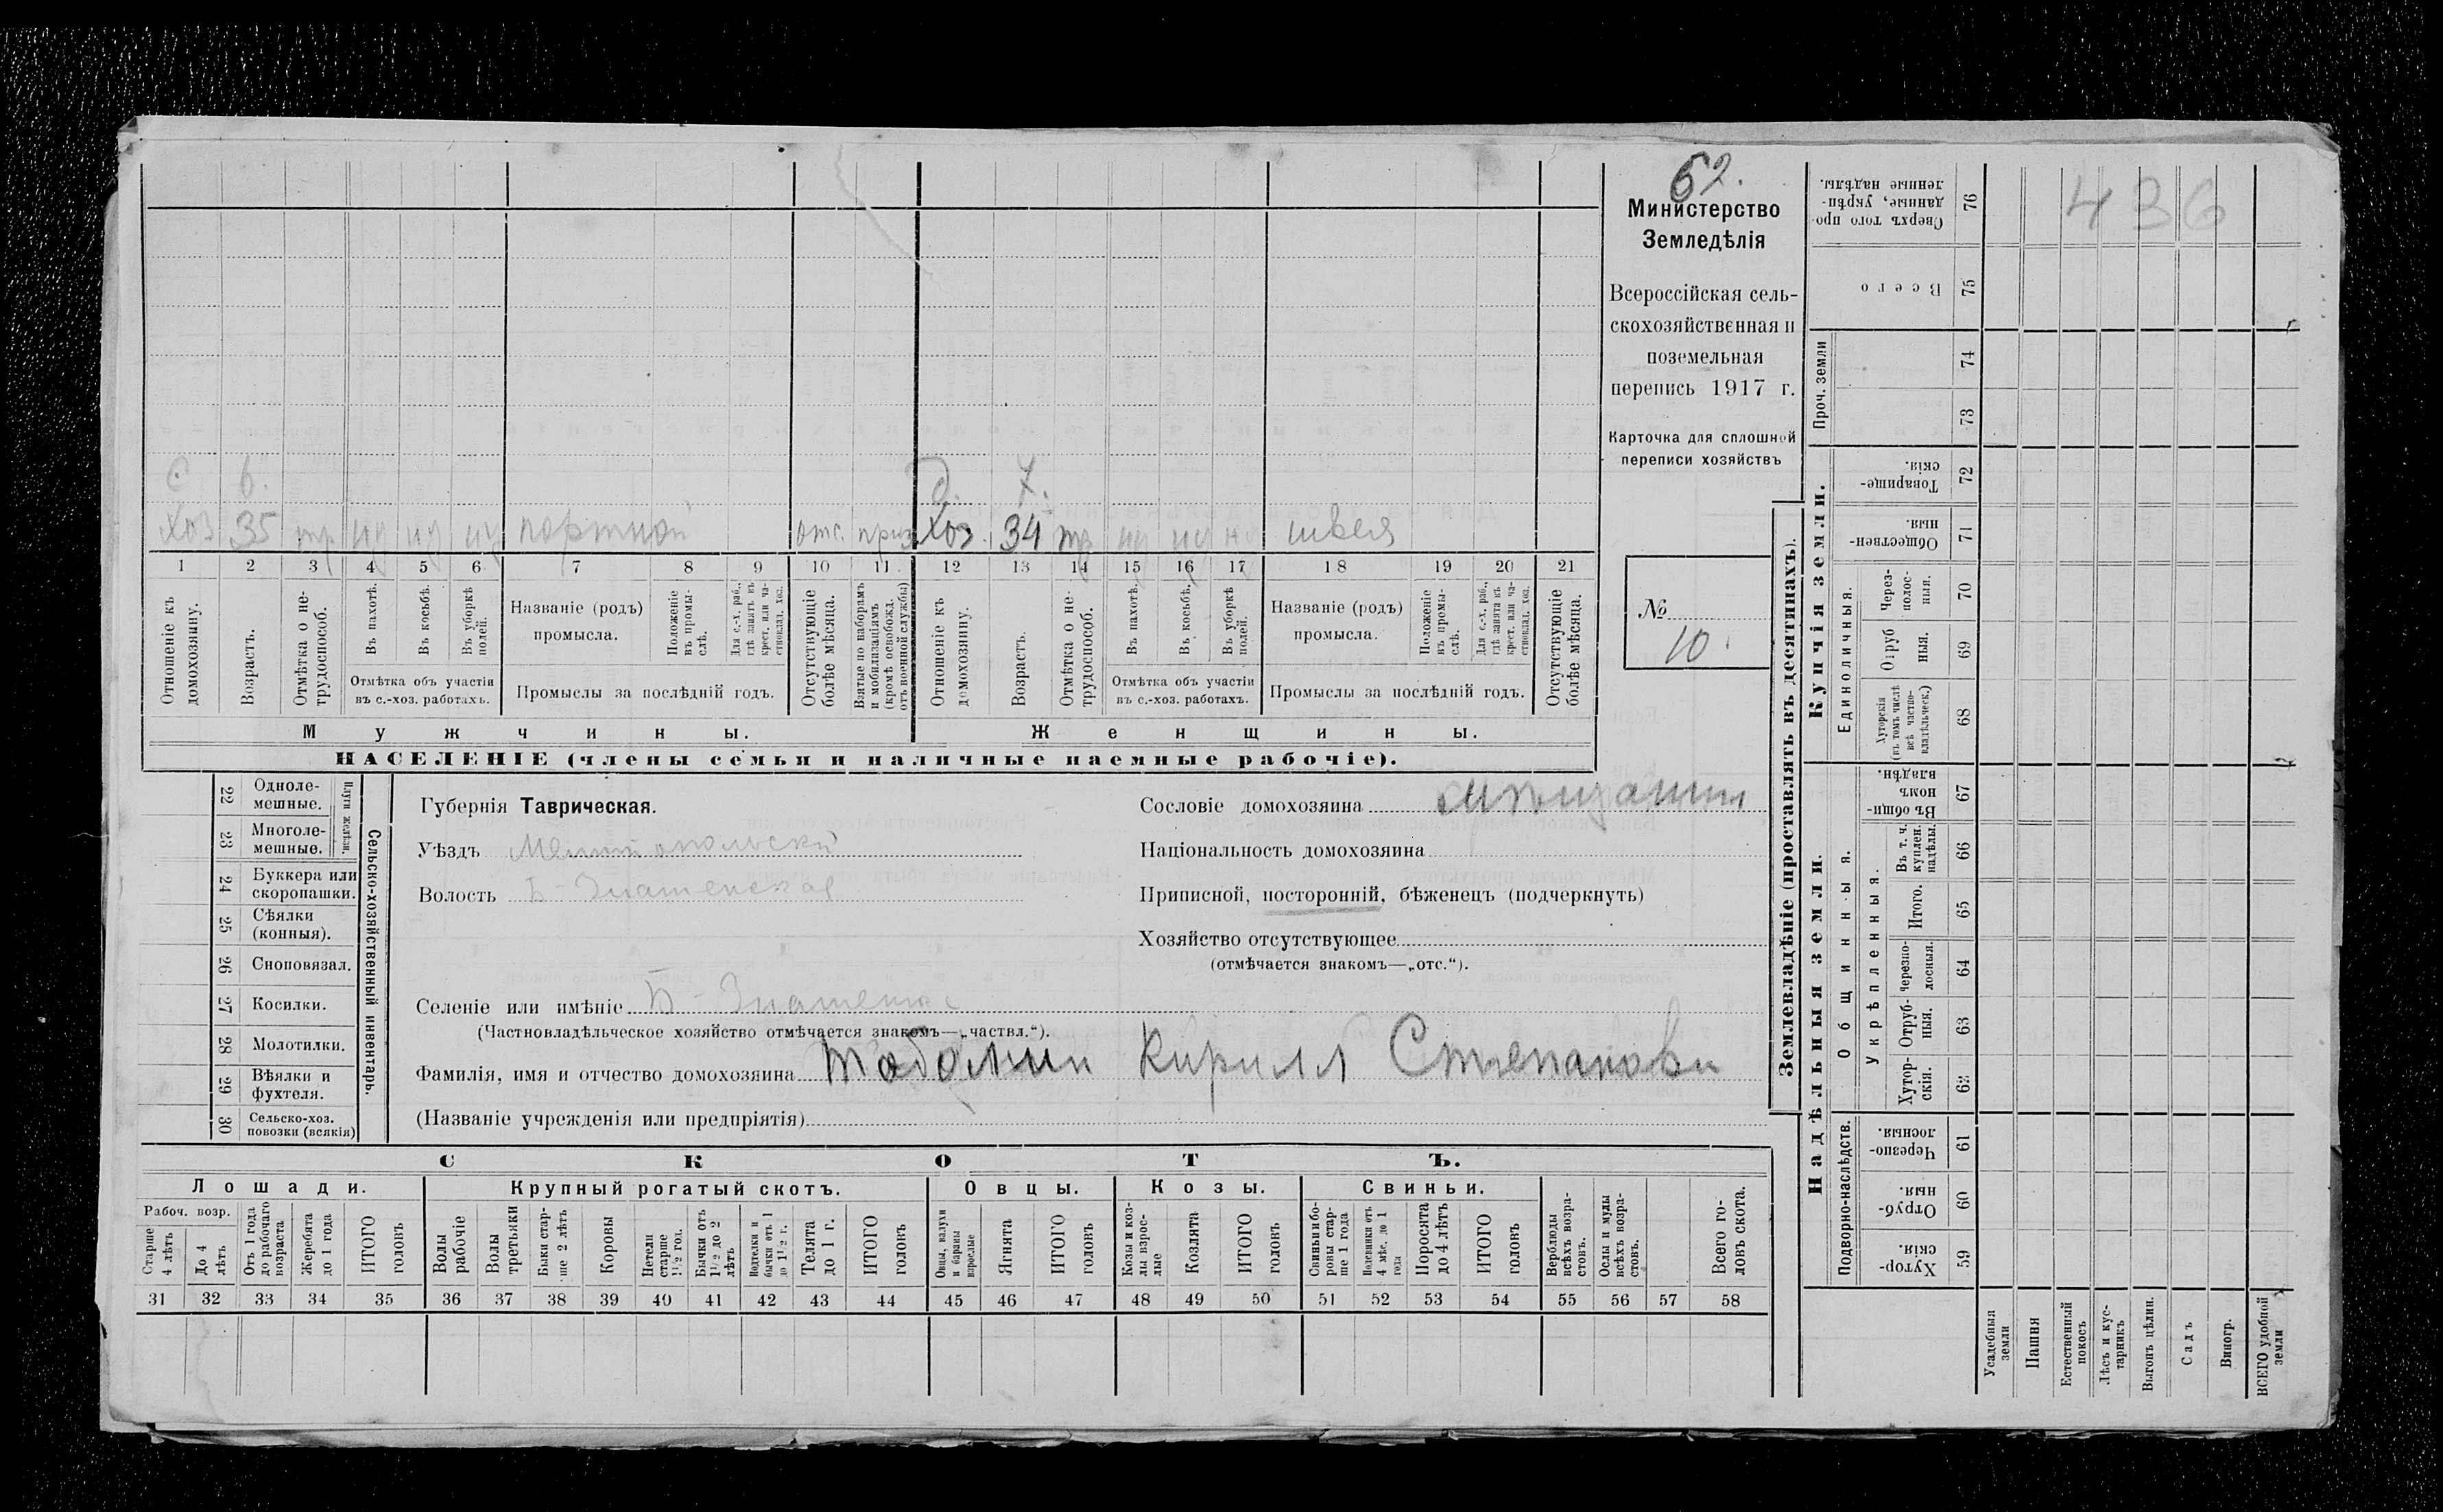 62.
Министерство
Земледѣлія
Всероссійская сель-
скохозяйственная и
поземельная
перепись 1917 г.
Карточка для сплошной
переписи хозяйствъ
№
10.
436
с. 6. д. 7.
Хоз 35 тр портной отс. приз Хоз. 34 тр швея
1 2 3 4 5 6 7 8 9 10 11 12 13 14 15 16 17 18 19 20 21
Отношеніе къ домохозяину.
Возрастъ.
Отмѣтка о не-трудоспособ.
Въ пахотѣ.
Въ косьбѣ.
Въ уборкѣ полей.
Отмѣтка объ участіи въ с.-хоз. работахъ.
Названіе (родъ) промысла.
Положеніе въ промы-слѣ.
Для с.-х. раб., гдѣ занятъ въ крест. или ча-стновлад. хоз.
Промыслы за послѣдній годъ.
Отсутствующіе болѣе мѣсяца.
Взятые по наборамъ и мобилизаціямъ (кромѣ освобожд. отъ военной службы)
Отношеніе къ домохозяину.
Возрастъ.
Отмѣтка о не-трудоспособ.
Въ пахотѣ.
Въ косьбѣ.
Въ уборкѣ полей.
Отмѣтка объ участіи въ с.-хоз. работахъ.
Названіе (родъ) промысла.
Положеніе въ промы-слѣ.
Для с.-х. раб., гдѣ занята въ крест. или ча-стновлад. хоз.
Промыслы за послѣдній годъ.
Отсутствующіе болѣе мѣсяца.
Мужчины. Женщины.
НАСЕЛЕНІЕ (члены семьи и наличные наемные рабочіе).
22 Одноле-мешные.
23 Многоле-мешные.
Плуги желѣзн.
24 Буккера или скоропашки.
25 Сѣялки (конныя).
26 Сноповязал.
27 Косилки.
28 Молотилки.
29 Вѣялки и фухтеля.
30 Сельско-хоз. повозки (всякія)
Сельско-хозяйственный инвентарь.
Губернія Таврическая.
Уѣздъ Мелитопольскій
Волость Б-Знаменская
Селеніе или имѣніе Б-Знаменка
(Частновладѣльческое хозяйство отмѣчается знакомъ—„частвл.“).
Фамилія, имя и отчество домохозяина Кирилл Степанови
(Названіе учрежденія или предпріятія)
Сословіе домохозяина мѣщанин
Національность домохозяина
Приписной, посторонній, бѣженецъ (подчеркнуть)
Хозяйство отсутствующее
(отмѣчается знакомъ—„отс.“).
СКОТЪ.
Лошади. Крупный рогатый скотъ. Овцы. Козы. Свиньи.
Рабоч. возр.
Старше 4 лѣтъ
До 4 лѣтъ
Отъ 1 года до рабочаго возраста
Жеребята до 1 года
ИТОГО головъ
Волы рабочіе
Волы третьяки
Быки стар-ше 2 лѣтъ
Коровы
Нетели старше 1½ год.
Бычки отъ 1½ до 2 лѣтъ
Подтелки и бычки отъ 1 до 1½ г.
Телята до 1 г.
ИТОГО головъ
Овцы, валухи и бараны взрослые
Ягнята
ИТОГО головъ
Козы и коз-лы взрос-лые
Козлята
ИТОГО головъ
Свиньи и бо-ровы стар-ше 1 года
Подсвинки отъ 4 мѣс. до 1 года
Поросята до 4 лѣтъ
ИТОГО головъ
Верблюды всѣхъ возра-стовъ.
Ослы и мулы всѣхъ возра-стовъ.
Всего го-ловъ скота.
31 32 33 34 35 36 37 38 39 40 41 42 43 44 45 46 47 48 49 50 51 52 53 54 55 56 57 58
Землевладѣніе (проставлять въ десятинахъ).
Надѣльныя земли. Купчія земли. Проч. земли
Подворно-наслѣдств.
Общинныя.
Укрѣпленныя.
Единоличныя.
76 Сверхъ того про-данные, укрѣп-ленные надѣлы.
75 Всего
74
73
72 Товарище-скія.
71 Обществен-ныя.
70 Через-полос-ныя.
69 Отруб ныя.
68 Хуторскія (въ томъ числѣ всѣ частно-владѣльческ.)
67 Въ общи-номъ владѣн.
66 Въ т. ч. куплен. надѣлы.
65 Итого.
64 Черезпо-лосныя.
63 Отруб-ныя.
62 Хутор-скія.
61 Черезпо-лосныя.
60 Отруб-ныя.
59 Хутор-скія.
Усадебныя земли
Пашня
Естественный покосъ
Лѣсъ и кус-тарникъ
Выгонъ цѣлин.
Садъ
Виногр.
ВСЕГО удобной земли